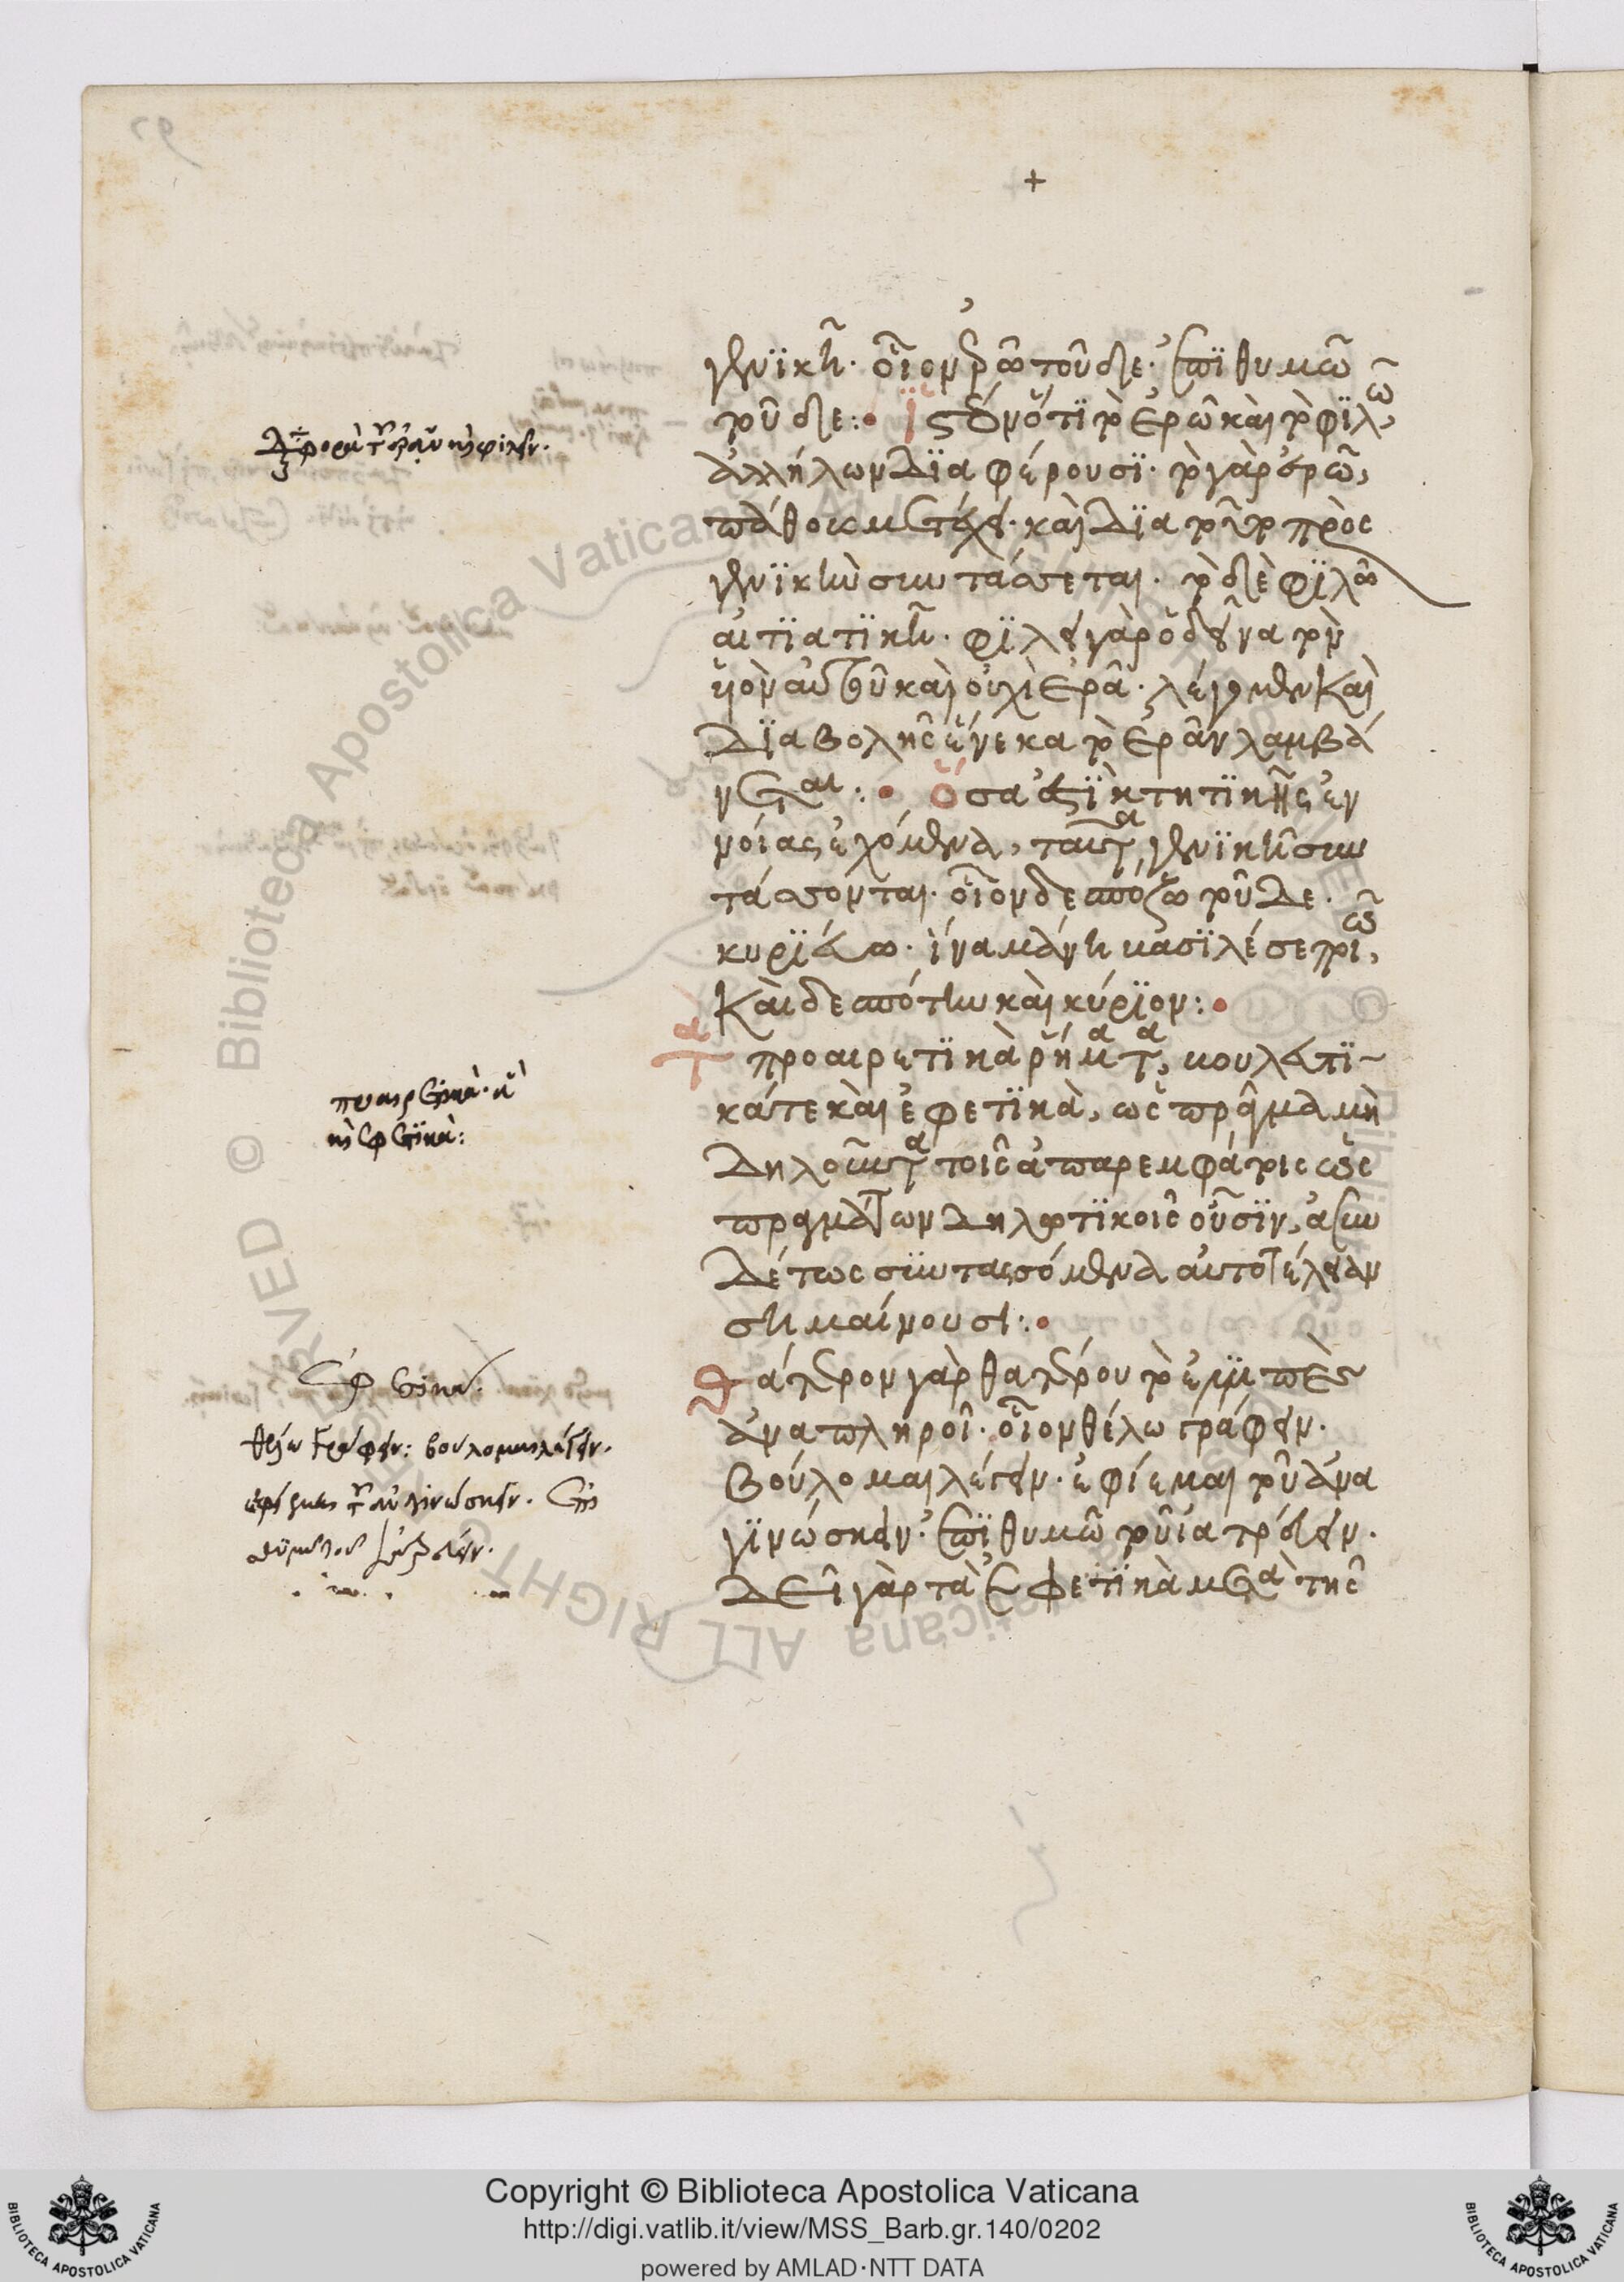 +
γενικῆ. οἷον ἐρῶ τοῦδε. ἐπιθυμῶ
τοῦδε: ἰστέον ὅτι τὸ ἐρῶ καὶ τὸ φιλῶ,
ἀλλήλων διαφέρουσι. τὸ γὰρ ἐρῶ,
πάθος μετέχει. καὶ διὰ τοῦτο πρὸς
γενικὴν συντάσσεται. τὸ δὲ φιλῶ
αἰτιατικῆ. φιλεῖ γὰρ ὁδεῖνα τὸν
υἱὸν αὐτοῦ καὶ οὐχὶ ἐρᾶ. λέγομεν καὶ
διαβολῆς ἕνεκα τὸ ἐρᾶν λαμβά
νεται: ὅσα ἐστὶ κτητικῆς ἐν
νοίας ἐχόμενα, ταῦτα γενικῆ συν
τάσσονται. οἷον δεσπόζω τοῦδε.
κυριεύω. ἵνα μὴ βασιλεύσει τρίτω,
καὶ δεσπότην καὶ κύριον:
Τὰ προαιρετικὰ ῥήματα, βουλευτι-
κά τε καὶ ἐφετικὰ, ὡς πρᾶγμα μὴ
δηλοῦντα τοῖς ἀπαρεμφάτοις ὡς
πραγμάτων δηλωτικοῖς οὖσιν, ἀσυν
δέτως συντασσόμενα αὐτοτέλειαν
σημαίνουσι:
Θάτερον γὰρ θατέρου τὸ ἐλλιπὲς
ἀναπληροῖ. οἷον θέλω γράφειν.
βούλομαι λέγειν. ἐφίεμαι τοῦ ἀνα
γινώσκειν. ἐπιθυμῶ τοῦ ἰατρεύειν.
δεῖ γὰρ τὰ ἐφετικὰ μετὰ τῆς
Διαφορὰ τοῦ ἐρᾶν καὶ φιλεῖν.
προαιρετικὰ.
καὶ ἐφετικὰ:
ἐφετικὰ.
θέλω γράφειν: βούλομαι λέγειν.
ἐφίεμαι τοῦ ἀναγινώσκειν. ἐπι
θυμῶ τοῦ
Copyright © Biblioteca Apostolica Vaticana
http://digi.vatlib.it/view/MSS_Barb.gr.140/0202
powered by AMLAD·NTT DATA
BIBLIOTECA APOSTOLICA VATICANA
BIBLIOTECA APOSTOLICA VATICANA